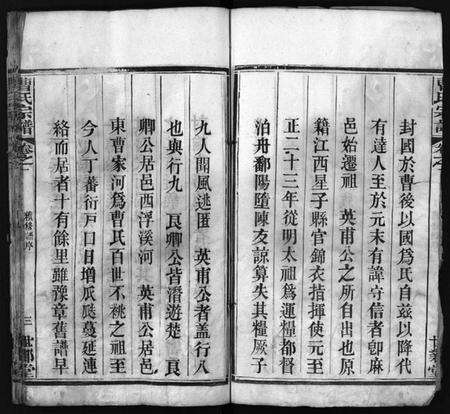 曹氏宗譜
封國於曹後以國爲氏自玆以降代
有達人至於元末有諱守信者卽麻
邑始遷祖 英甫公之所自出也原
籍江西星子縣官錦衣指揮使元至
正二十三年從明太祖爲運糧都督
泊舟鄱陽墮陳友諒算失其糧厥子
九人聞風逃匿 英甫公者蓋行八
也與行九 艮卿公皆潛遊楚 艮
卿公居邑西浮溪河 英甫公居邑
東曹家河爲曹氏百世不祧之祖至
今人丁蕃衍戸口日增瓜瓞蔓延連
絡而居者十有餘里雖豫章舊譜早
曹氏宗譜
卷之一
三